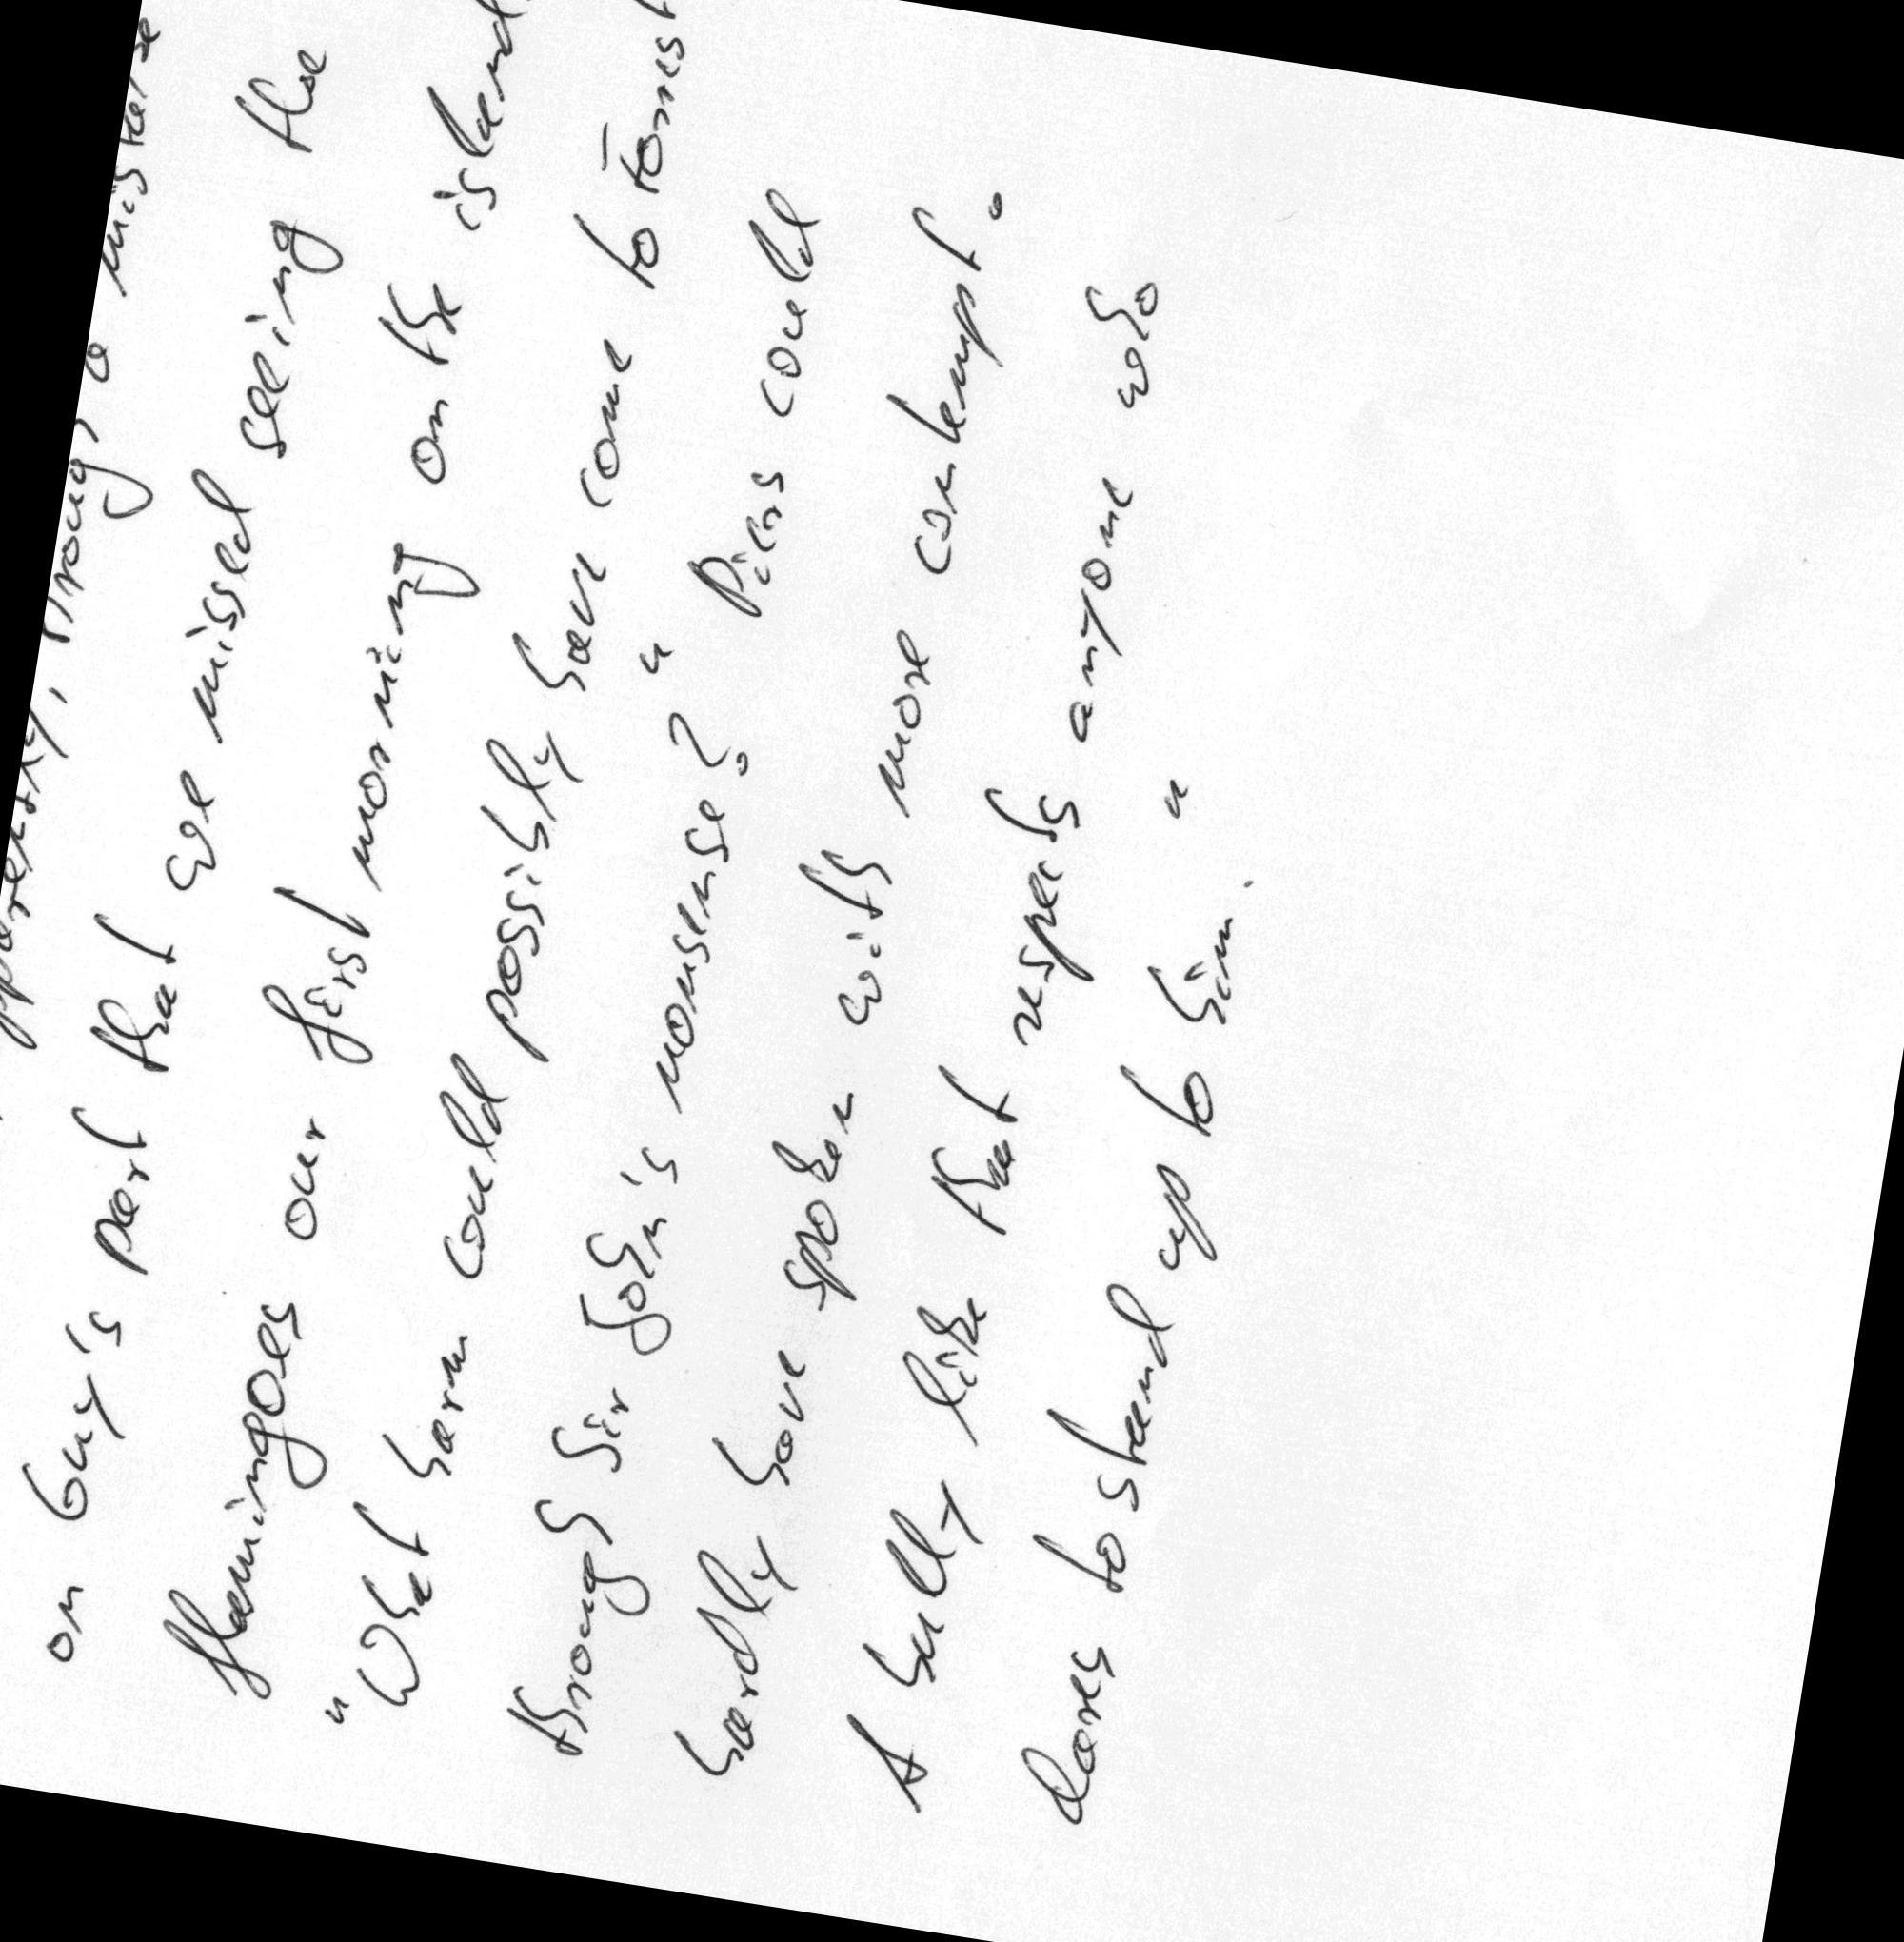 apparently, through a mistake
on Guy's part that we missed seeing the
flamingoes our first morning on the island.
"What harm could possibly have come to
through Sir John's nonsense?" Piers could
hardly have spoken with more contempt.
A bully like that respects anyone who
dares to stand up to him."